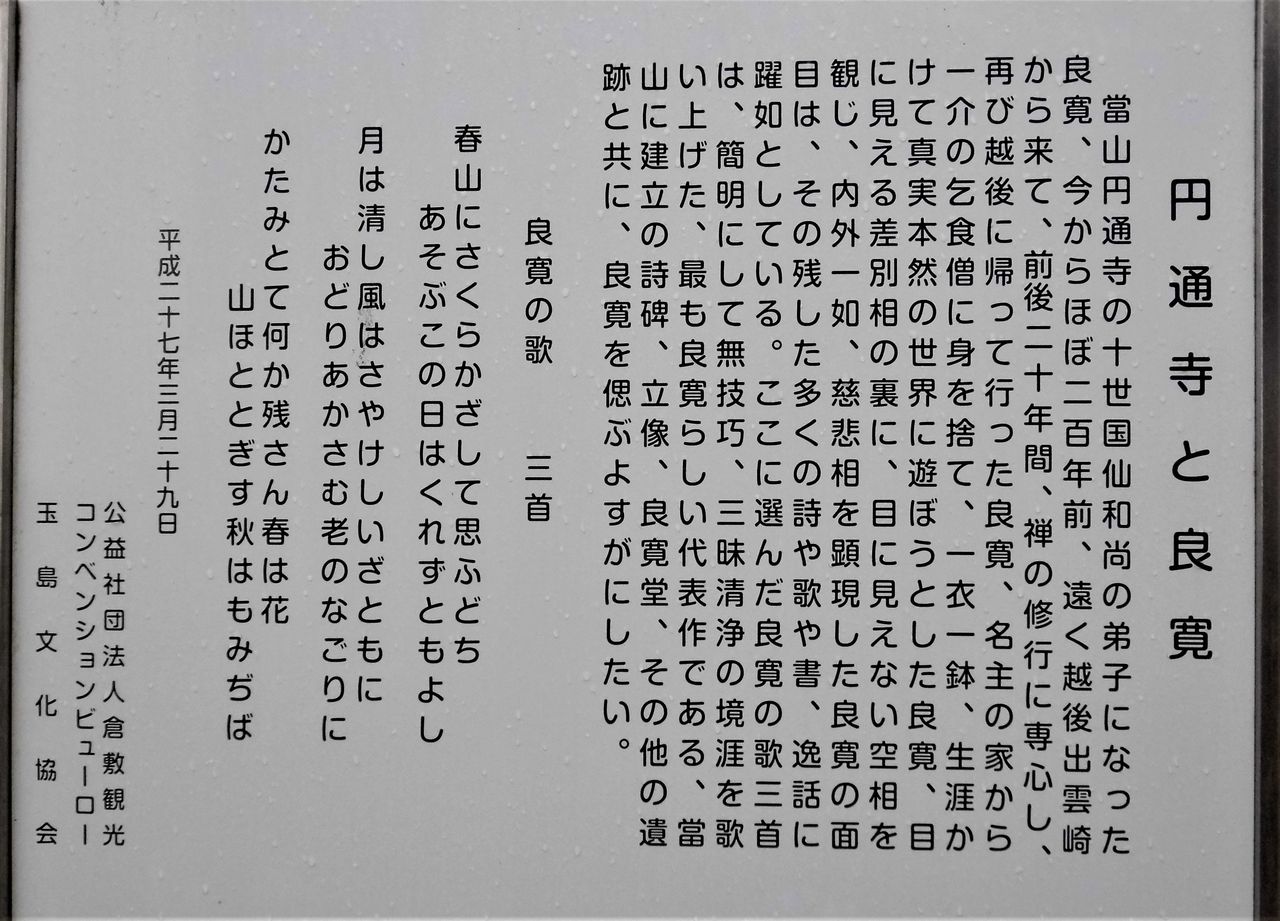 円通寺と良寛
當山円通寺の十世国仙和尚の弟子になった
良寛、今からほぼ二百年前、遠く越後出雲崎
から来て、前後二十年間、禅の修行に専心し、
再び越後に帰って行った良寛、名主の家から
一介の乞食僧に身を捨て、一衣一鉢、生涯か
けて真実本然の世界に遊ぼうとした良寛、目
に見える差別相の裏に、目に見えない空相を
観じ、内外一如、慈悲相を顕現した良寛の面
目は、その残した多くの詩や歌や書、逸話に
躍如としている。ここに選んだ良寛の歌三首
は、簡明にして無技巧、三昧清浄の境涯を歌
い上げた、最も良寛らしい代表作である、當
山に建立の詩碑、立像、良寛堂、その他の遺
跡と共に、良寛を偲ぶよすがにしたい。
良寛の歌　三首
春山にさくらかざして思ふどち
あそぶこの日はくれずともよし
月は清し風はさやけしいざともに
おどりあかさむ老のなごりに
かたみとて何か残さん春は花
山ほととぎす秋はもみぢば
平成二十七年三月二十九日
公益社団法人倉敷観光
コンベンションビューロー
玉島文化協会